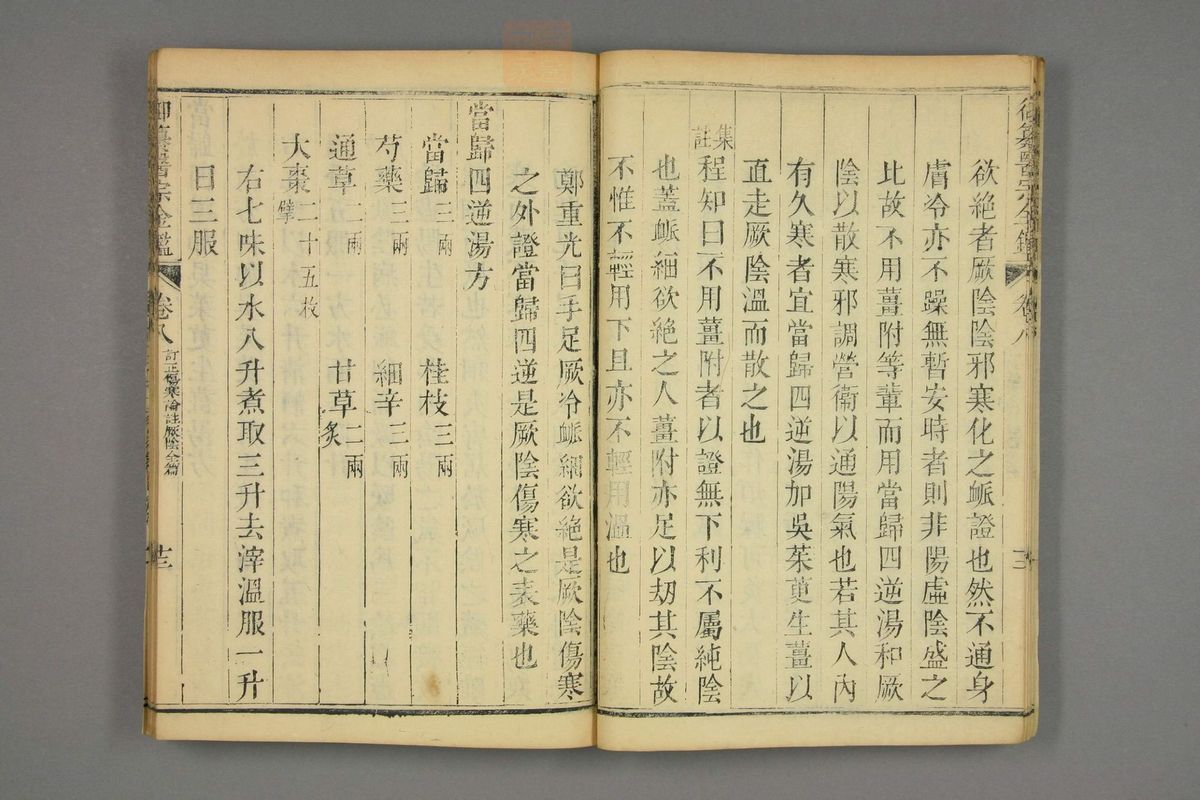 欲絶者厥陰陰邪寒化之脈證也然不通身
膚冷亦不躁無暫安時者則非陽虛陰盛之
比故不用薑附等輩而用當歸四逆湯和厥
陰以散寒邪調營衞以通陽氣也若其人內
有久寒者宜當歸四逆湯加吳茱萸生薑以
直走厥陰溫而散之也
集註
程知曰不用薑附者以證無下利不屬純陰
也蓋脈細欲絶之人薑附亦足以刼其陰故
不惟不輕用下且亦不輕用溫也
鄭重光曰手足厥冷脈細欲絶是厥陰傷寒
之外證當歸四逆是厥陰傷寒之表藥也
當歸四逆湯方
當歸三兩　桂枝三兩
芍藥三兩　細辛三兩
通草二兩　甘草二兩炙
大棗二十五枚擘
右七味以水八升煮取三升去滓溫服一升
日三服
御纂醫宗金鑑　卷八　訂正傷寒論註厥陰全篇